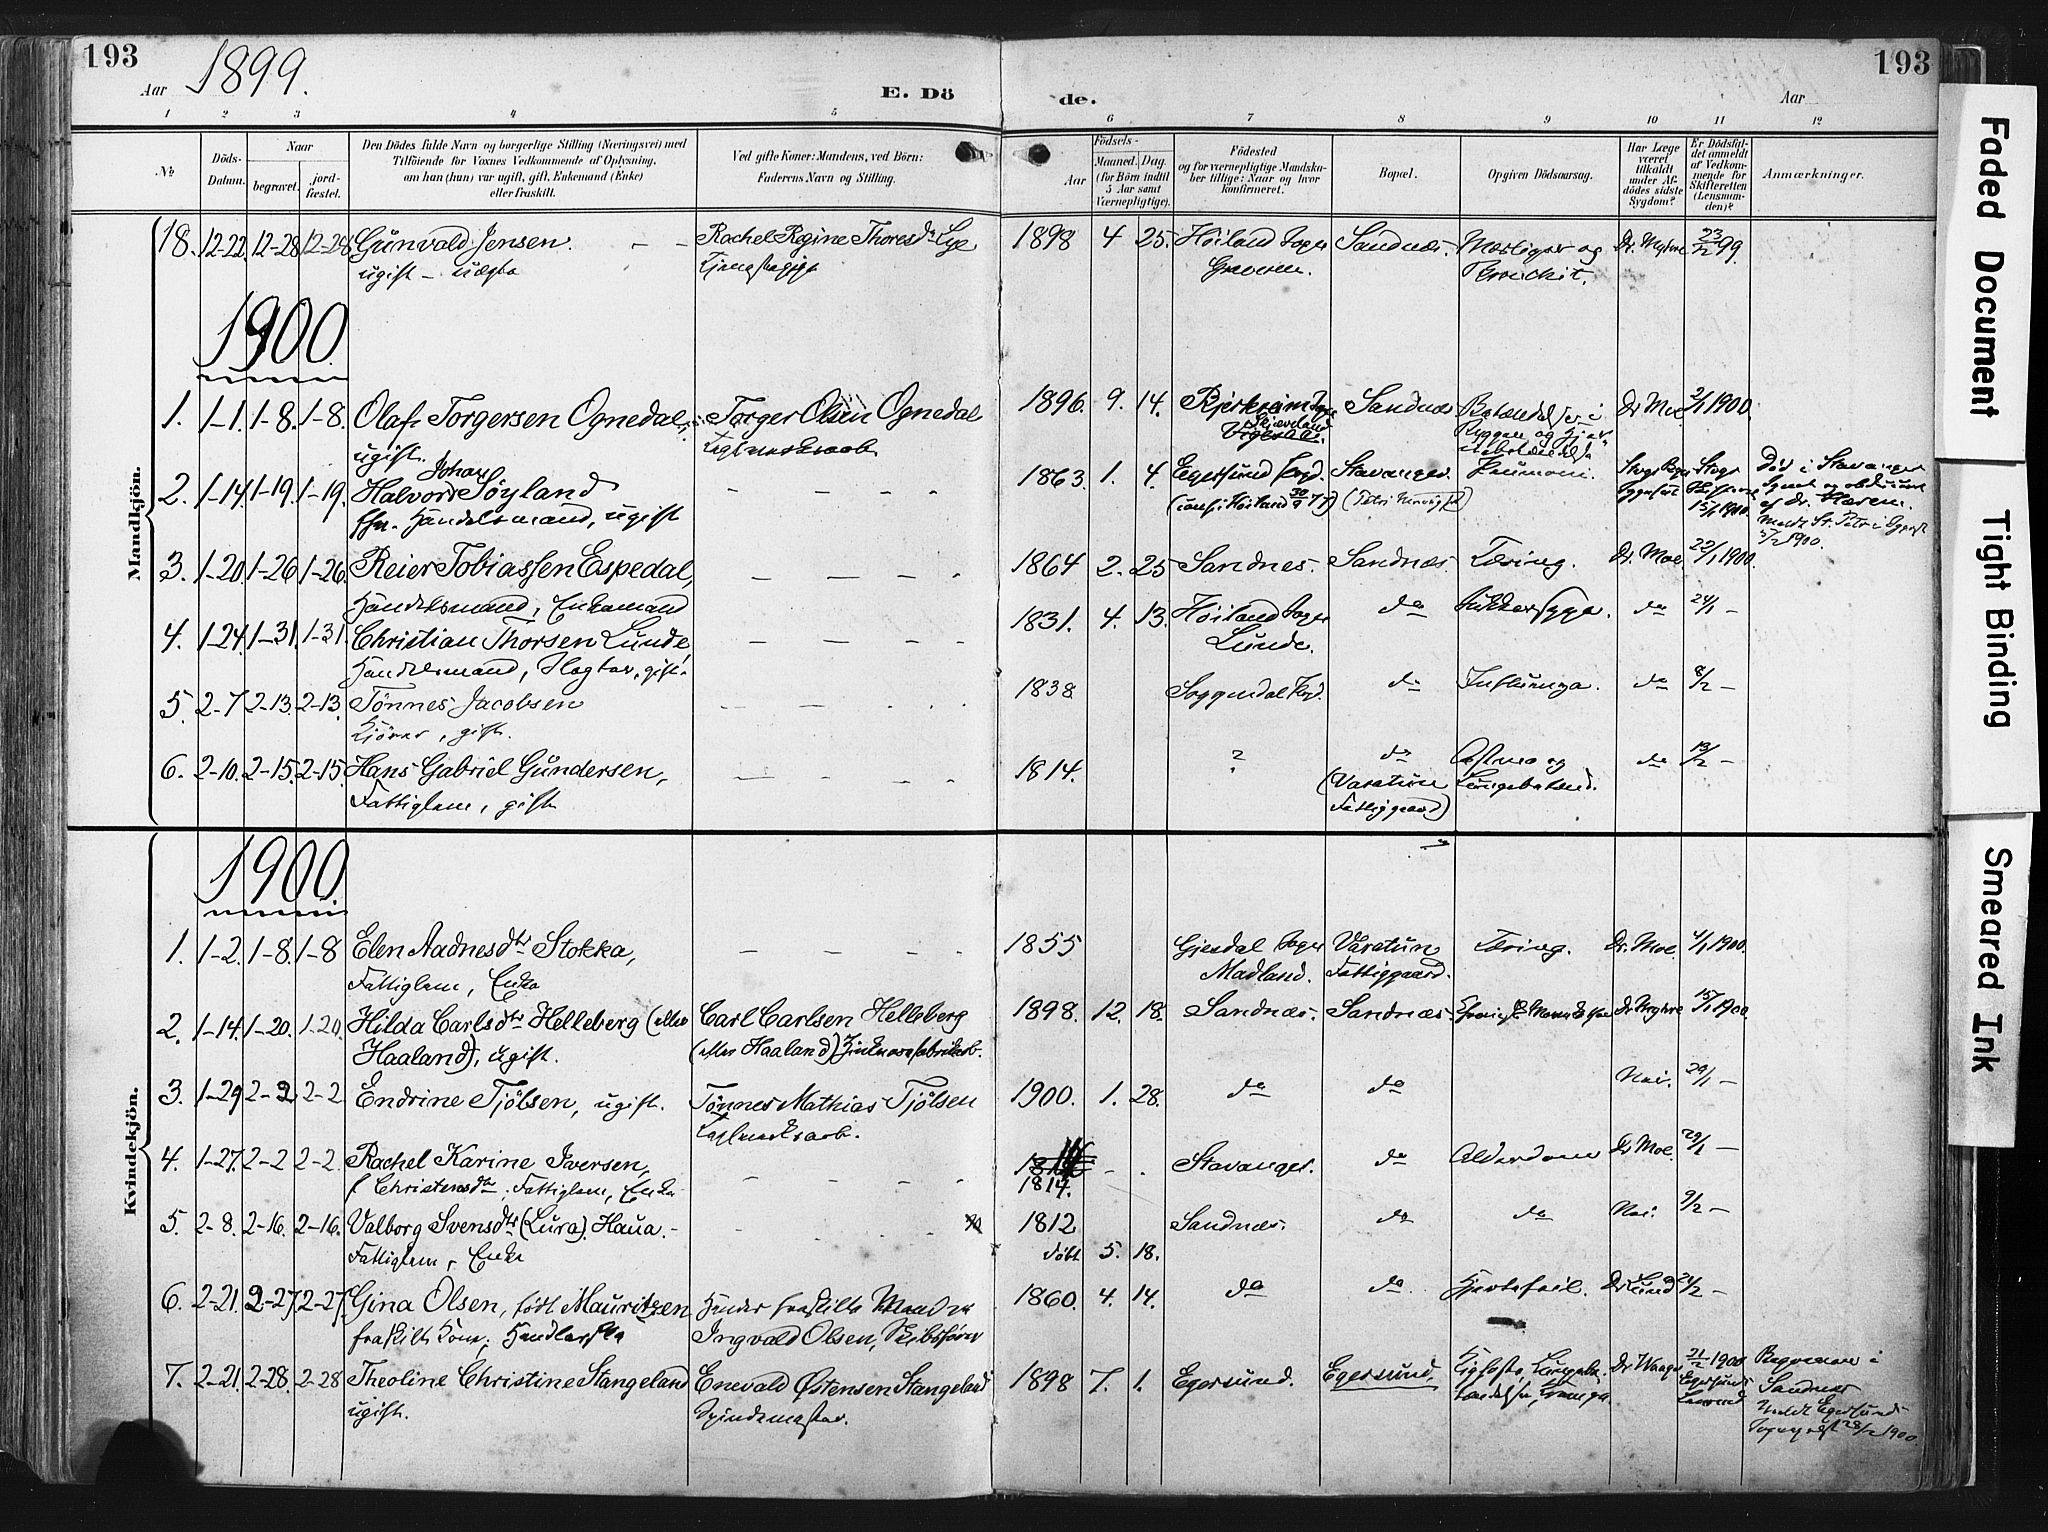 193
Aar 1899.
E. Dö
de.
Aar
193
1 2 3 4 5 6 7 8 9 10 11 12
№
Döds-Datum.
Naar
begravet.
jord-fæstet.
Den Dödes fulde Navn og borgerlige Stilling (Næringsvei) med
Tilföiende for Voxnes Vedkommende af Oplysning,
om han (hun) var ugift, gift, Enkemand (Enke)
eller fraskilt.
Ved gifte Koner: Mandens, ved Börn:
Faderens Navn og Stilling.
Aar
Födsels-
Maaned. Dag.
(for Börn indtil
5 Aar samt
Værnepligtige).
Födested
og for værnepligtige Mandska-
ber tillige: Naar og hvor
konfirmeret.
Bopæl.
Opgiven Dödsaarsag.
Har Læge
været
tilkaldt
under Af-
dödes sidste
Sygdom?
Er Dödsfal-
det anmeldt
af Vedkom-
mende for
Skifteretten
(Lensman-
den)?
Anmærkninger.
Mandkjön.
18. 12-22. 12-28 12-28 Gunvald Jensen. Rachel Regine Thoresdr Lye 1898 4 25. Höiland Sogn Sandnæs. Mæslinger og Dr. Myhre 23/12 99.
ugift - uægte Tjenestepige Graveren. Bronchit.
1900
1. 1-1. 1-8. 1-8. Olaf Torgersen Ognedal, Torger Olsen Ognedal 1896. 9. 14. Bjerkreim Sogn Sandnæs Betændelse i Dr Moe 2/1 1900.
ugift. Teglverksarb. Skjæveland Ryggen og
2. 1-14. 1-19. 1-19. Halvor Johan Söyland 1863. 1. 4. Egersund Prgd. Stavanger. Pneumoni. Död i Stavanger
fhv. Handelsmand, ugift (conf. i Höiland 30/9 77) af Dr. Haaren.
15/1 1900.
3. 1-20. 1-26 1-26. Reier Tobiassen Espedal, 1864 2. 25 Sandnes. Sandnæs. Tæring. Dr. Moe 22/1 1900.
Handelsmand, Enkemand
4. 1-24. 1-31. 1-31. Christian Thorsen Lunde, 1831. 4. 13. Höiland Sogn do Sukkersyge. do 24/1 -
Handelsmand, Slagter, gift. Lunde.
5. 2-7 2-13. 2-13. Tönnes Jacobsen 1838. Soggndal Prgd. do Influenza. do 8/2 -
Kjörer, gift.
6. 2-10. 2-15. 2-15. Hans Gabriel Gundersen, 1814. ? do Astma og do 13/2 -
Fattiglem, gift (Varatun Lungebetænd.
Fattiggaard)
Kvindekjön.
1900.
1. 1-2. 1-8. 1-8 Elen Aadnesdtr Stokka, 1855 Gjesdal Sogn Varatun Tæring. Dr. Moe. 4/1 1900.
Fattiglem, Enke Madland. Fattiggaard.
2. 1-14. 1-20. 1-20. Hilda Carlsdtr Helleberg (eller Carl Carlsen Helleberg 1898. 12. 18. Sandnæs. Sandnæs. Dr Myhre 15/1 1900.
Haaland), ugift. (eller Haaland)
3. 1-29 2-2 2-2 Endrine Tjölsen, ugift. Tönnes Mathias Tjölsen 1900. 1. 28. do do Nei. 29/1 -
Teglverksarb.
4. 1-27. 2-2 2-2. Rachel Karine Iversen, Stavanger. do Alderdom Dr Moe. 29/1 -
f. Christensdtr, Fattiglem, Enke 1814.
5. 2-8. 2-16. 2-16. Valborg Svensdtr (Lura) Haua. 1812 Sandnæs. do do Nei. 9/2 -
Fattiglem, Enke döbt 5. 18.
6. 2-21. 2-27. 2-27. Gina Olsen, födt Mauritzen Hendes fraskilte Mand er 1860. 4. 14. do do Hjertefeil. Dr Lund 21/2 -
fraskilt Kone, Handlerske Ingvald Olsen, Skibsförer
7. 2-21. 2-28. 2-28 Theoline Christine Stangeland Enevald Østensen Stangeland 1898 7. 1. Egersund. Egersund. Kighoste, Lungebe- Dr Waage 21/2 1900 Begraven i
ugift. Spindemester. tændelse, Krampe Egersund Sandnæs
Meldt Egersund
28/2 1900.
Faded Document
Tight Binding
Smeared Ink